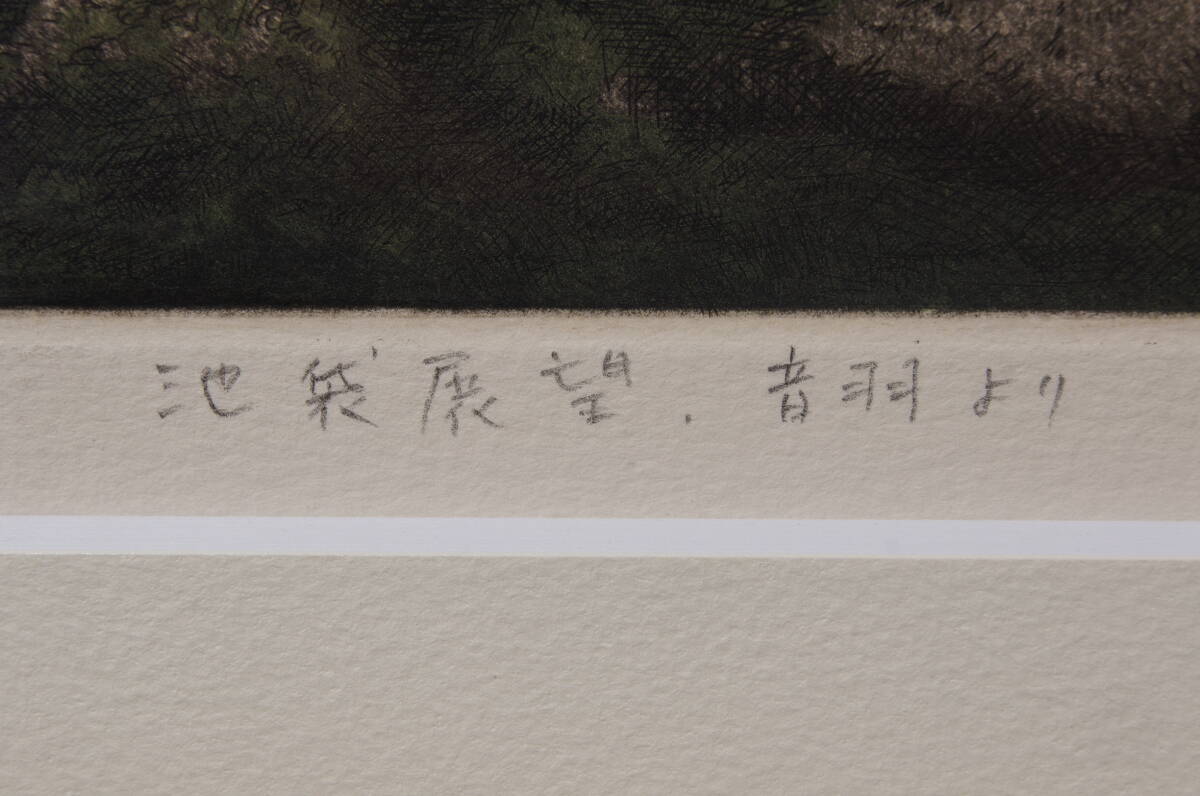 池袋展望.音羽より